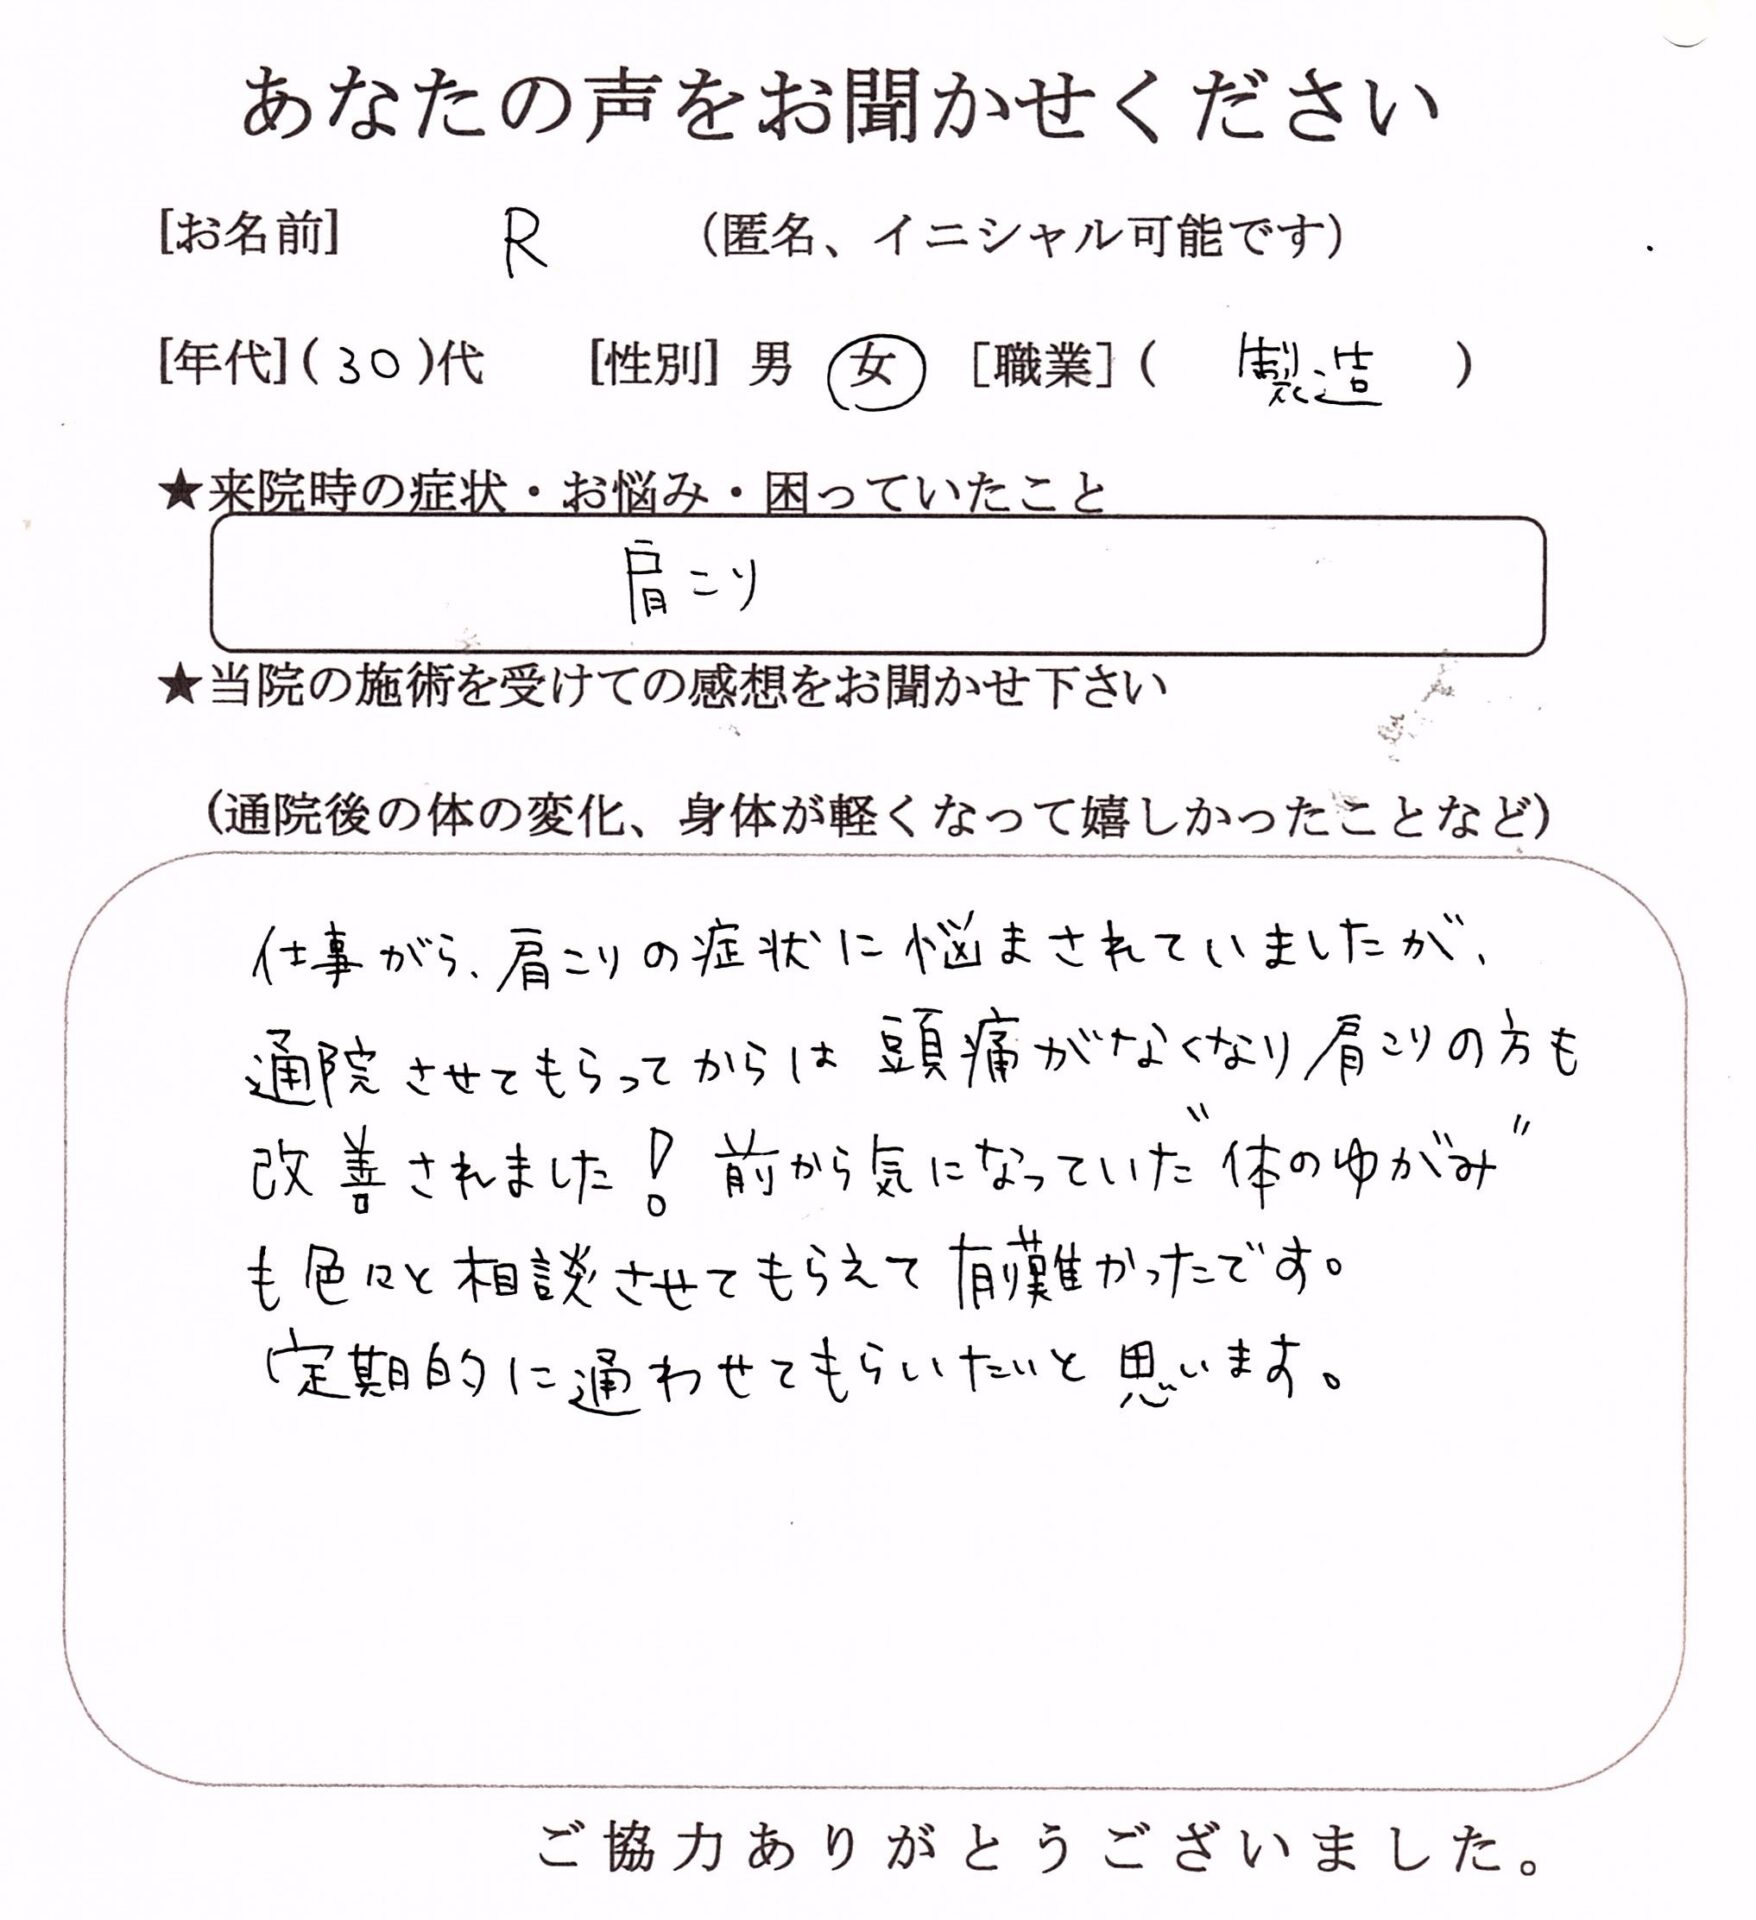 あなたの声をお聞かせください
[お名前] R (匿名、イニシャル可能です)
[年代](30)代 [性別] 男 女 [職業]( 製造 )
★来院時の症状・お悩み・困っていたこと
肩こり
★当院の施術を受けての感想をお聞かせ下さい
(通院後の体の変化、身体が軽くなって嬉しかったことなど)
仕事がら、肩こりの症状に悩まされていましたが、
通院させてもらってからは頭痛がなくなり肩こりの方も
改善されました! 前から気になっていた"体のゆがみ"
も色々と相談させてもらえて有難かったです。
定期的に通わせてもらいたいと思います。
ご協力ありがとうございました。